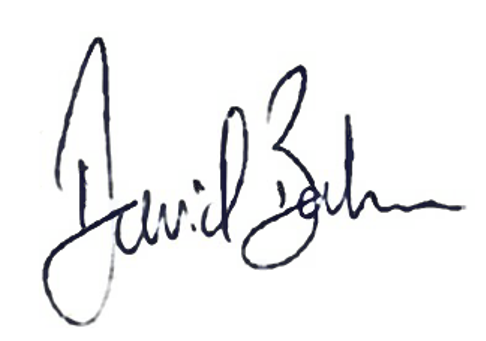 David Bohm